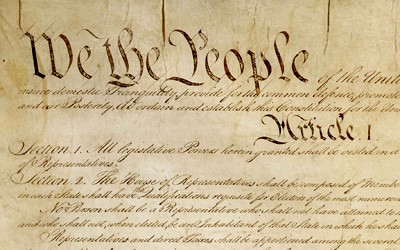 We the People of the Unite
insure domestic Tranquility, provide for the common defence, promote
and our Posterity, do ordain and establish this Constitution for the Uni
Article. I
Section. 1. All legislative Powers herein granted shall be vested in a
of Representatives.
Section. 2. The House of Representatives shall be composed of Membe
in each State shall have the Qualifications requisite for Electors of the most numerou
No Person shall be a Representative who shall not have attained to
and who shall not, when elected, be an Inhabitant of that State in which he sha
Representatives and direct Taxes shall be apportioned among the several